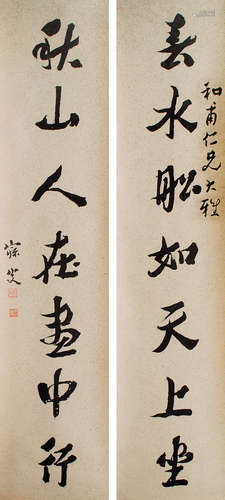 春水船如天上坐
和甫仁兄大雅
秋山人在画中行
寐叟